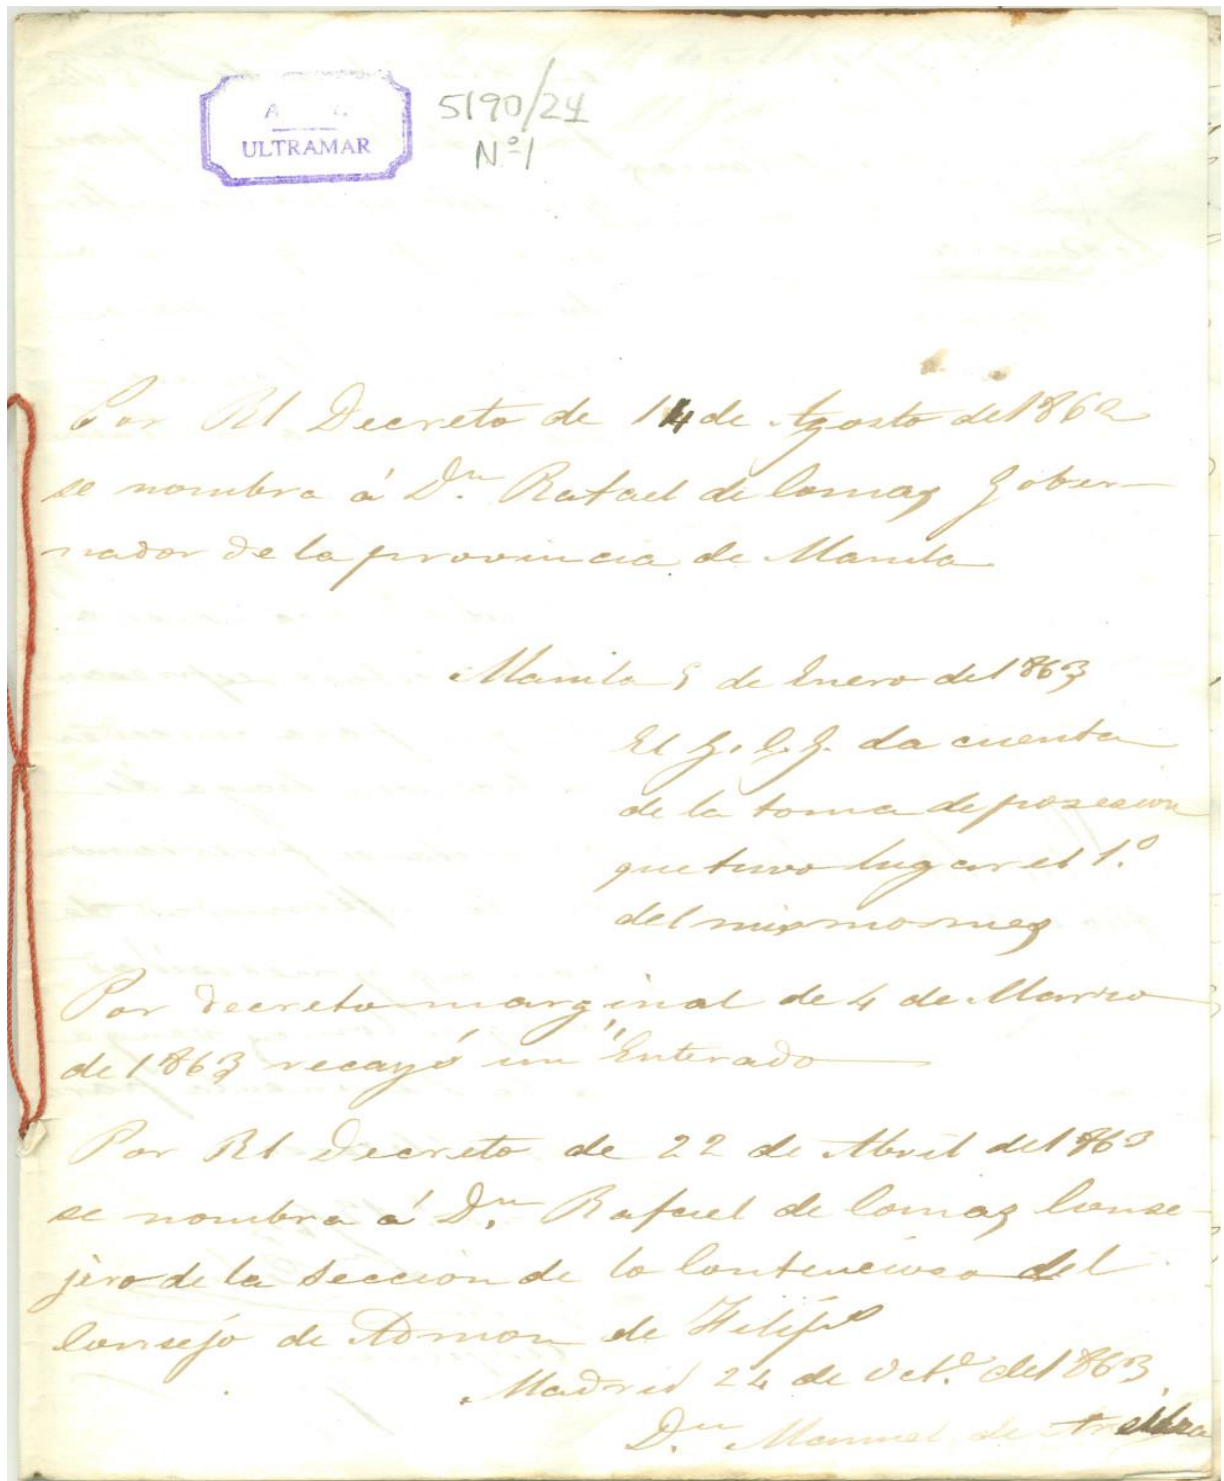 ULTRAMAR
5190/24
Nº 1
Por Rl Decreto de 14 de Agosto de 1862
se nombra á Dn. Rafael de Comas Gober-
nador de la provincia de Manila
Manila 5 de Enero de 1863
El G. C. G. da cuenta
de la toma de posesion
que tuvo lugar el 1.º
del mismo mes
Por decreto marginal de 4 de Marzo
de 1863 recayó un "Enterado
Por Rl Decreto de 22 de Abril de 1863
se nombra á Dn. Rafael de Comas Conse-
jero de la Seccion de lo Contencioso del
Consejo de Admon de Filips
Madrid 24 de Oct.e de 1863
Dn. Manuel de